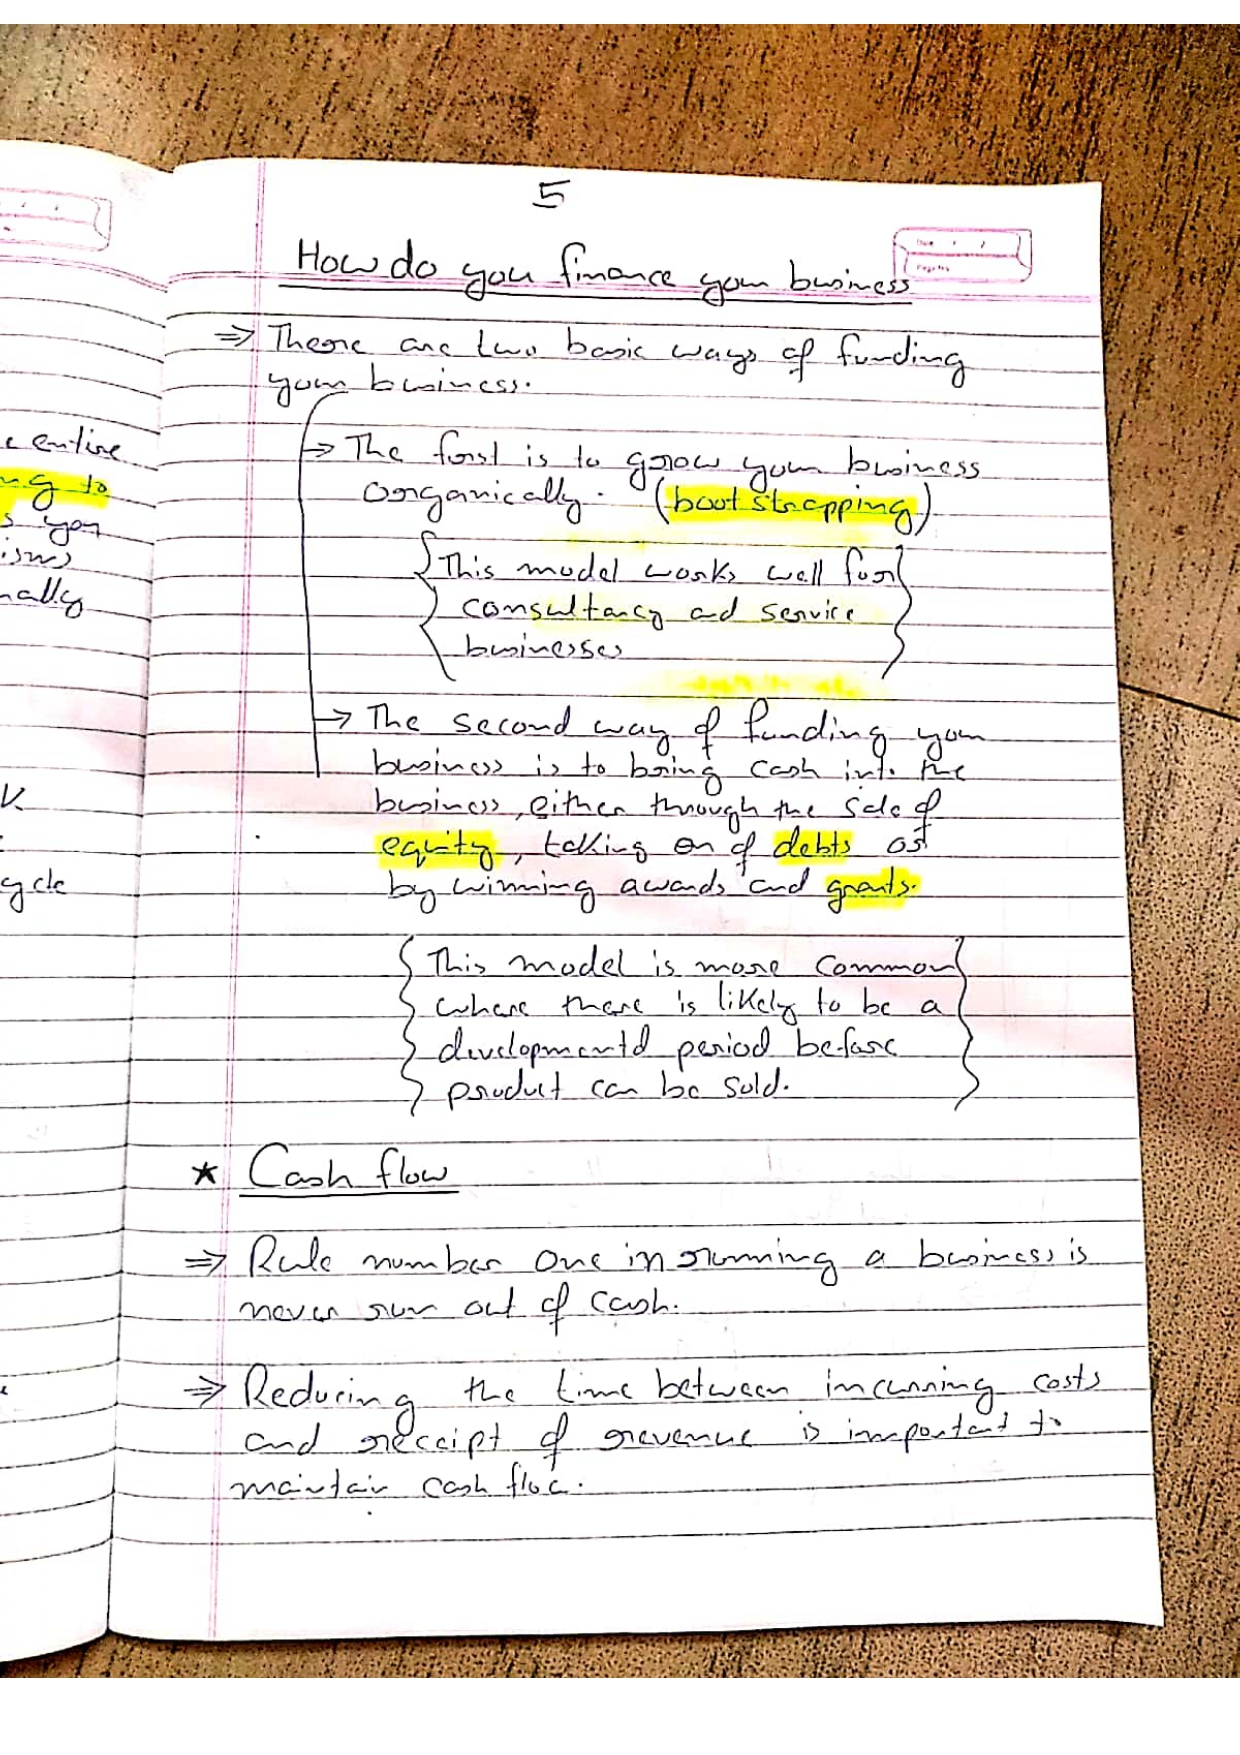 5
How do you finance your business
⇒ There are two basic ways of funding
your business.
→ The first is to grow your business
organically. (bootstrapping)
{This model works well for}
consultancy and service
businesses
→ The second way of funding your
business is to bring cash into the
business, either through the sale of
equity, taking on of debts or
by winning awards and grants.
{This model is more common}
where there is likely to be a
developmental period before
product can be sold.
★ Cash flow
⇒ Rule number one in running a business is
never run out of cash.
⇒ Reducing the time between incurring costs
and receipt of revenue is important to
maintain cash flow.
entire
ng to
s you
isms
nally
K.
ycle